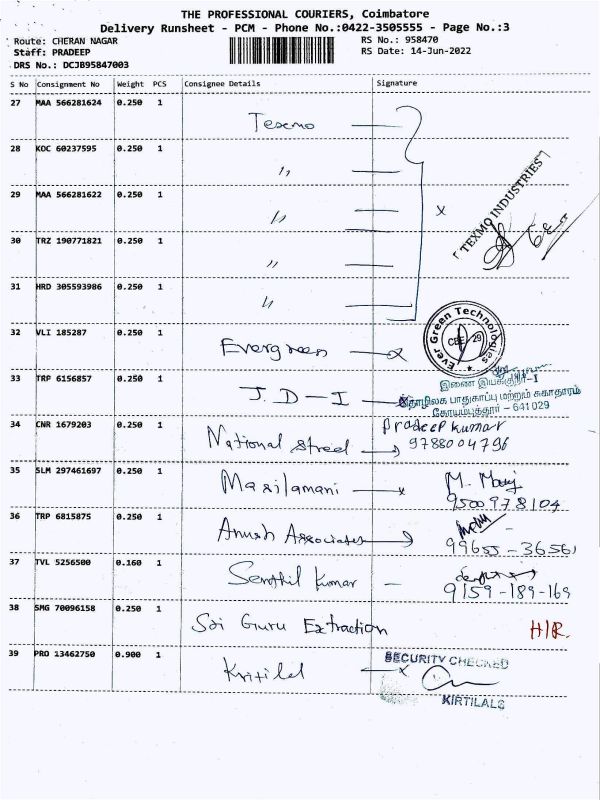 THE PROFESSIONAL COURIERS, Coimbatore
Delivery Runsheet - PCM - Phone No.:0422-3505555 - Page No.:3
Route: CHERAN NAGAR RS No.: 958470
Staff: PRADEEP RS Date: 14-Jun-2022
DRS No.: DCJB95847003
S No Consignment No Weight PCS Consignee Details Signature
27 MAA 566281624 0.250 1 Texmo
28 KOC 60237595 0.250 1 "
29 MAA 566281622 0.250 1 " x
TEXMO INDUSTRIES
30 TRZ 190771821 0.250 1 "
31 HRD 305593986 0.250 1 "
32 VLI 185287 0.250 1 Evergreen
Ever Green Technologies
CBE - 29
33 TRP 6156857 0.250 1 J.D-I
இணை இயக்குநர்-I
தொழிலக பாதுகாப்பு மற்றும் சுகாதாரம்
கோயம்புத்தூர் - 641 029
34 CNR 1679203 0.250 1 National Pradeep kumar
9788004796
35 SLM 297461697 0.250 1 Masilamani x M.
9500978104
36 TRP 6815875 0.250 1 Anush Associates
99655-36561
37 TVL 5256500 0.160 1 Senthil Kumar -
9159-189-169
38 SMG 70096158 0.250 1 Sri Guru Extraction H/R.
39 PRO 13462750 0.900 1 Kritilal x
SECURITY CHECKED
KIRTILALS